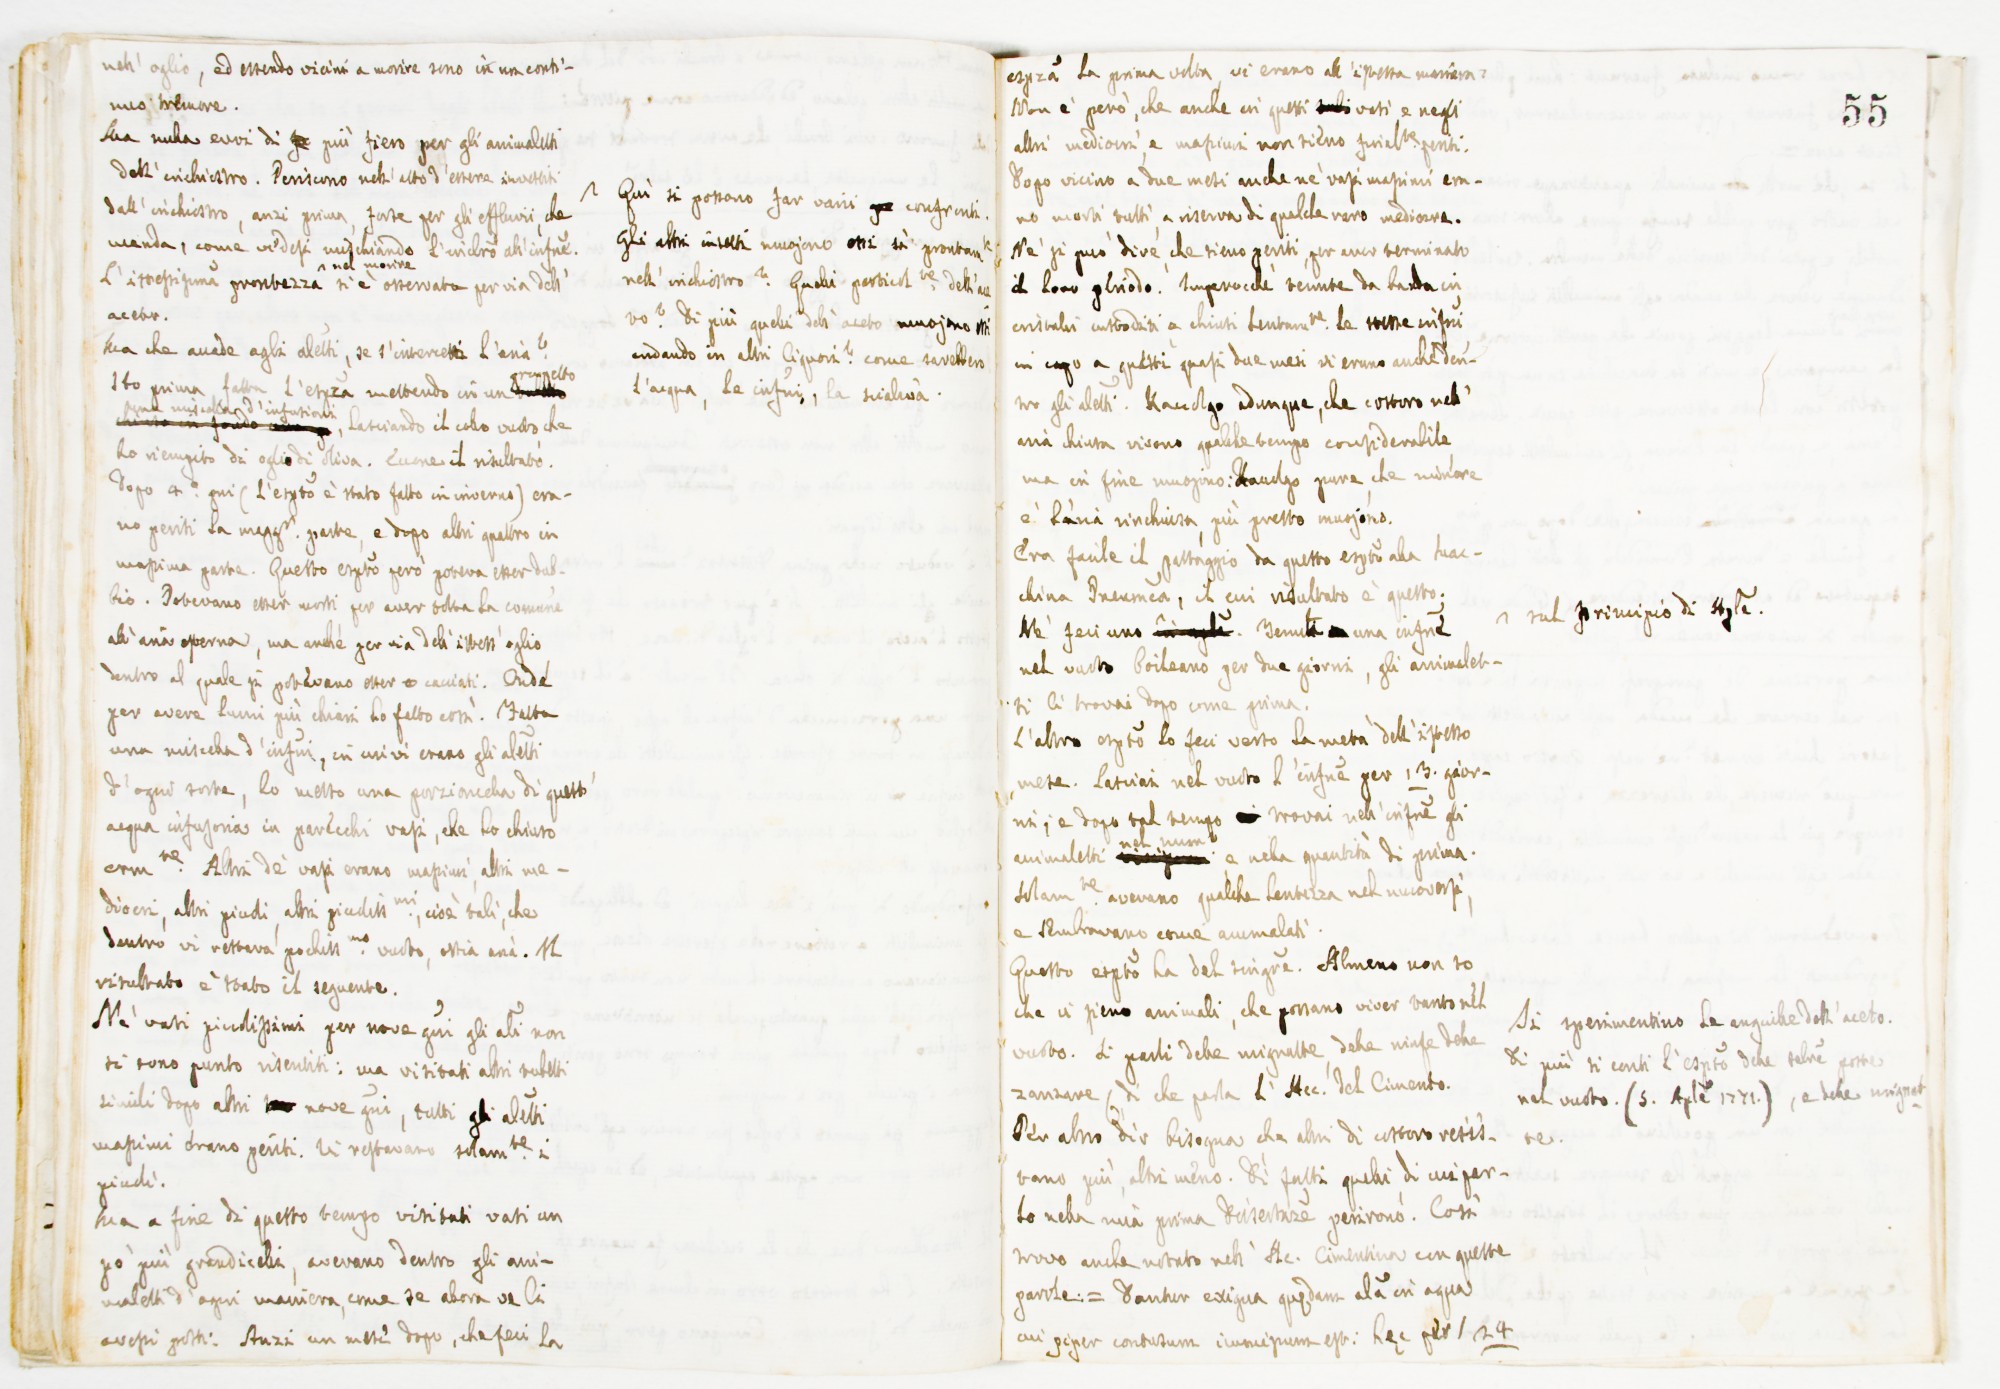 nell' oglio, ed essendo vicini a morire sono in un conti-
nuo tremore.
Ma nulla evvi di più fiero per gli animaletti
dell' inchiostro. Periscono nell' atto d' essere investiti
dall' inchiostro, anzi prima, forse per gli effluvii, che
manda, come videsi mischiando l' inchro all' infne.
L' istessissima prestezza nel morire si è osservata per via dell'
aceto.
Ma che accade agli aletti, se s' intercetti l' aria?
Ho prima fatta l' espza mettendo in un
una miscella d' infusioni, lasciando il collo vuoto che
ho riempito di oglio di oliva. Eccone il risultato.
Dopo 4º gni (l' espto è stato fatto in inverno) era-
no periti la magg.r parte, e dopo altri quattro in
massima parte. Questo espto però poteva esser dub-
bio. Potevano esser morti per aver tolta la comune
all' aria esterna, ma anche per via dell' istess' oglio
dentro al quale si potevano esser cacciati. Onde
per avere lumi più chiari ho fatto così. Fatta
una miscella d' infni, in cui vi erano gli aletti
d' ogni sorte, ho messo una porzioncella di questa
acqua infusoria in parecchi vasi, che ho chiuso
erm.te. Altri de' vasi erano massimi, altri me-
diocri, altri piccoli, altri piccoliss.mi, cioè tali, che
dentro vi restava pochiss.mo vuoto, ossia aria. Il
risultato è stato il seguente.
Ne' vasi picciolissimi per nove gni gli ali non
si sono punto risentiti: ma visitati altri vaselli
simili dopo altri nove gni, tutti gli aletti
massimi erano periti. Vi restavano solam.te i
piccoli.
Ma a fine di questo tempo visitati vasi un
pò più grandicelli, avevano dentro gli ani-
maletti d' ogni maniera, come se allora ve li
avessi posti. Anzi un mese dopo, che feci la
Quì si possono far varii confronti.
Gli altri insetti muojono essi sì prontam.te
nell' inchiostro? Quelli particol.te dell' ace
to? Di più quelli dell' aceto muojono essi
andando in altri liquori? come sarebbero
l' acqua, le infni, la scialiva.
55
espza la prima volta, vi erano all' istessa maniera.
Non è però, che anche in questi vasi e negli
altri mediocri, e massimi non sieno finalte. periti.
Dopo vicino a due mesi anche ne' vasi massimi era-
no morti tutti a riserva di qualche raro mediocre.
Ne' si può dire, che sieno periti, per aver terminato
il loro periodo. Imperocchè tenute da banda in
cristalli custoditi e chiusi lentam.te le stesse infni
in capo a questi quasi due mesi vi erano anche den-
tro gli aletti. Raccolgo adunque, che costoro nell'
aria chiusa vivono qualche tempo considerabile,
ma in fine muojono: Raccolgo pure, che minore
è l' aria rinchiusa, più presto muojono.
Era facile il passaggio da questo espto alla Mac-
china Pneumca, il cui risultato è questo.
Ne' feci uno. Tenuta una infne
nel vuoto boileano per due giorni, gli animalet-
ti li trovai dopo come prima.
sul principio di Aple.
L' altro espto lo feci verso la metà dell' istesso
mese. Lasciai nel vuoto l' infne per 13. gior-
ni; e dopo tal tempo trovai nell' infne gli
animaletti nel num.º e nella quantità di prima.
Solam.te avevano qualche lentezza nel muoversi,
e sembravano come ammalati.
Questo espto ha del singre. Almeno non so
che ci sieno animali, che possano viver tanto nel
vuoto. Si parli delle mignatte delle ninfe delle
zanzare, di che parla l' Acc. del Cimento.
Per altro dir bisogna che altri di costoro resis-
tano più, altri meno. Di fatti quelli di cui par-
lo nella mia prima Dissertaze perirono. Così
trovo anche notato nell' Ac. Cimentina con queste
parole: = Dantur exigua quędam ala in aqua
cui piper contusum immissum est: hęc per / 24
Si sperimentino le anguille dell' aceto.
Di più si conti l' espto delle poste
nel vuoto. (5. Aple 1771.), e delle mignat-
te.